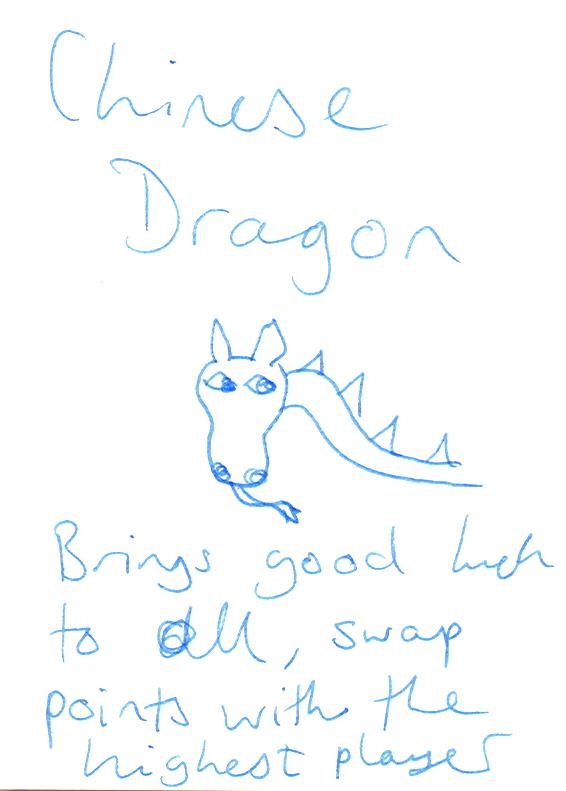 Chinese
Dragon
Brings good luck
to all, swap
points with the
highest player